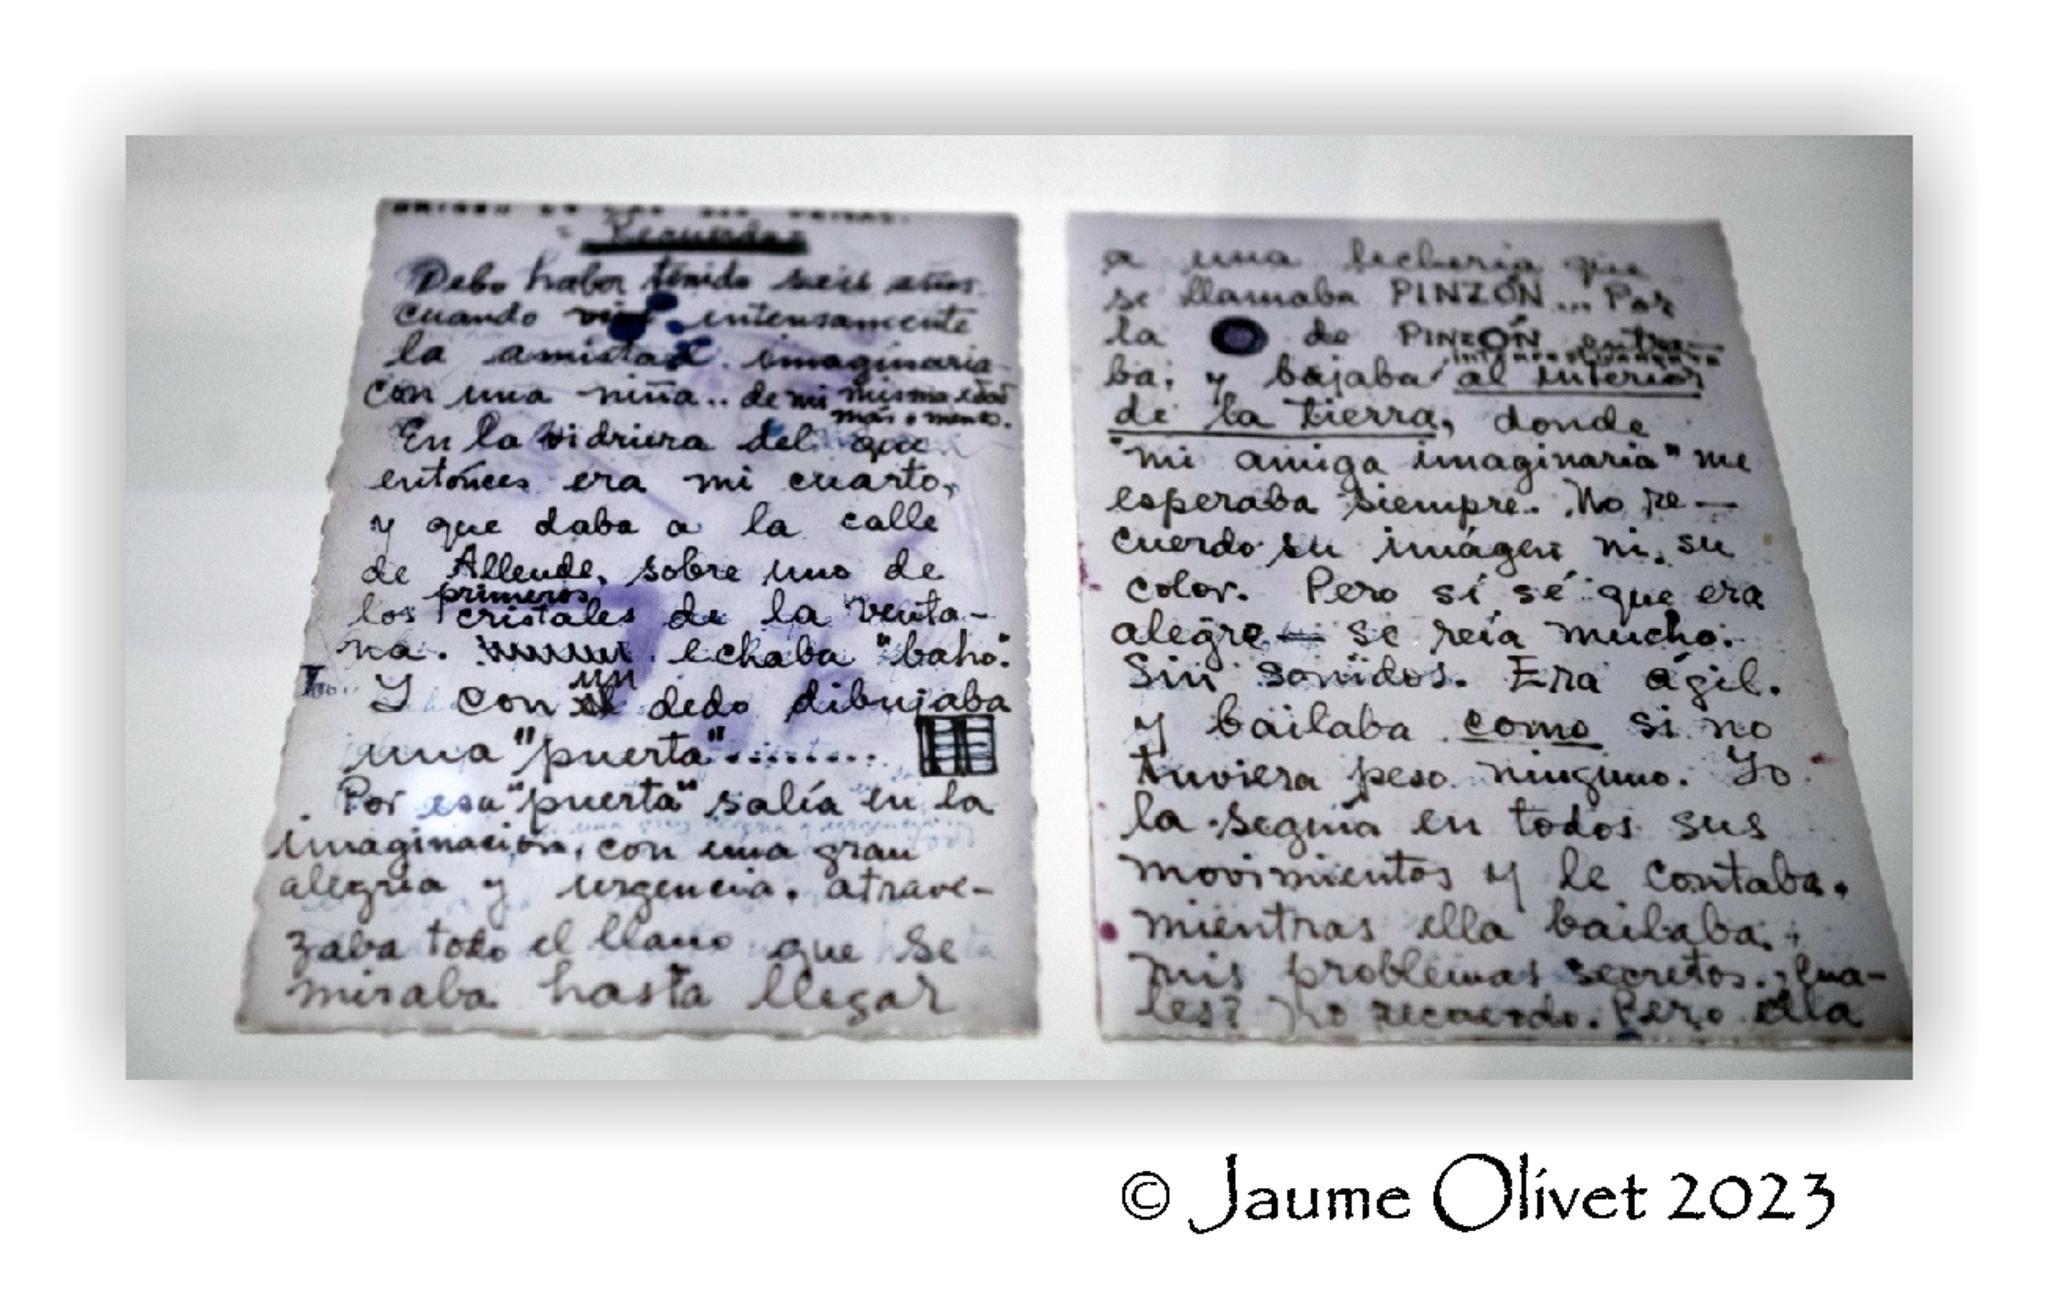 ORIGEN DE LAS DOS FRIDAS.
= Recuerdo =
Debo haber tenido seis años
cuando viví intensamente
la amistad imaginaria
con una niña.. de mi misma edad
más o menos.
En la vidriera del que
entónces era mi cuarto,
y que daba a la calle
de Allende, sobre uno de
primeros
los cristales de la venta-
na. echaba "baho".
un
Y con dedo dibujaba
una "puerta".........
Por esa "puerta" salía en la
imaginación, con una gran
alegría y urgencia. atrave-
zaba todo el llano que se
miraba hasta llegar
a una lecheria que
se llamaba PINZÓN... Por
la O de PINZÓN entra-
intempestivamente
ba, y bajaba al interior
de la tierra, donde
"mi amiga imaginaria" me
esperaba siempre. No re-
cuerdo su imágen ni su
color. Pero sí sé que era
alegre - se reía mucho.
Sin sonidos. Era ágil.
y bailaba como si no
tuviera peso ninguno. Yo
la seguía en todos sus
movimientos y le contaba,
mientras ella bailaba,
mis problemas secretos. ¿Cua-
les? No recuerdo. Pero ella
© Jaume Olivet 2023